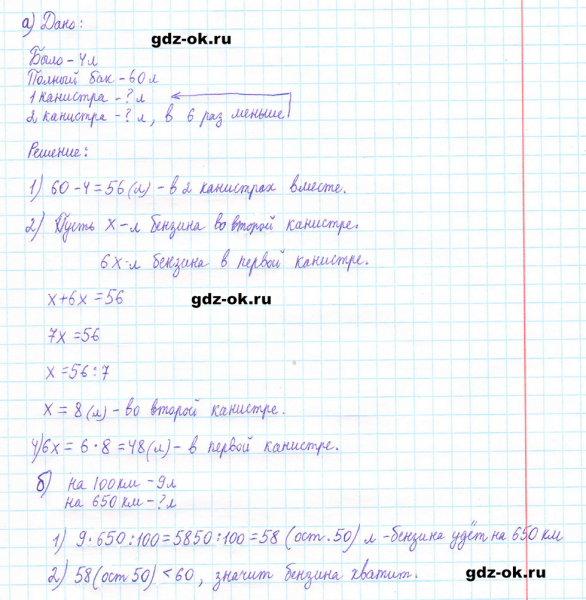 а) Дано:
gdz-ok.ru
Было - 4 л
Полный бак - 60 л
1 канистра - ? л
2 канистра - ? л, в 6 раз меньше
Решение:
1) 60 - 4 = 56 (л) - в 2 канистрах вместе.
2) Пусть x - л бензина во второй канистре.
6x - л бензина в первой канистре.
x + 6x = 56
gdz-ok.ru
7x = 56
x = 56 : 7
x = 8 (л) - во второй канистре.
4) 6x = 6 · 8 = 48 (л) - в первой канистре.
б) на 100 км - 9 л
на 650 км - ? л
1) 9 · 650 : 100 = 5850 : 100 = 58 (ост. 50) л - бензина уйдёт на 650 км
2) 58 (ост 50) < 60, значит бензина хватит.
gdz-ok.ru